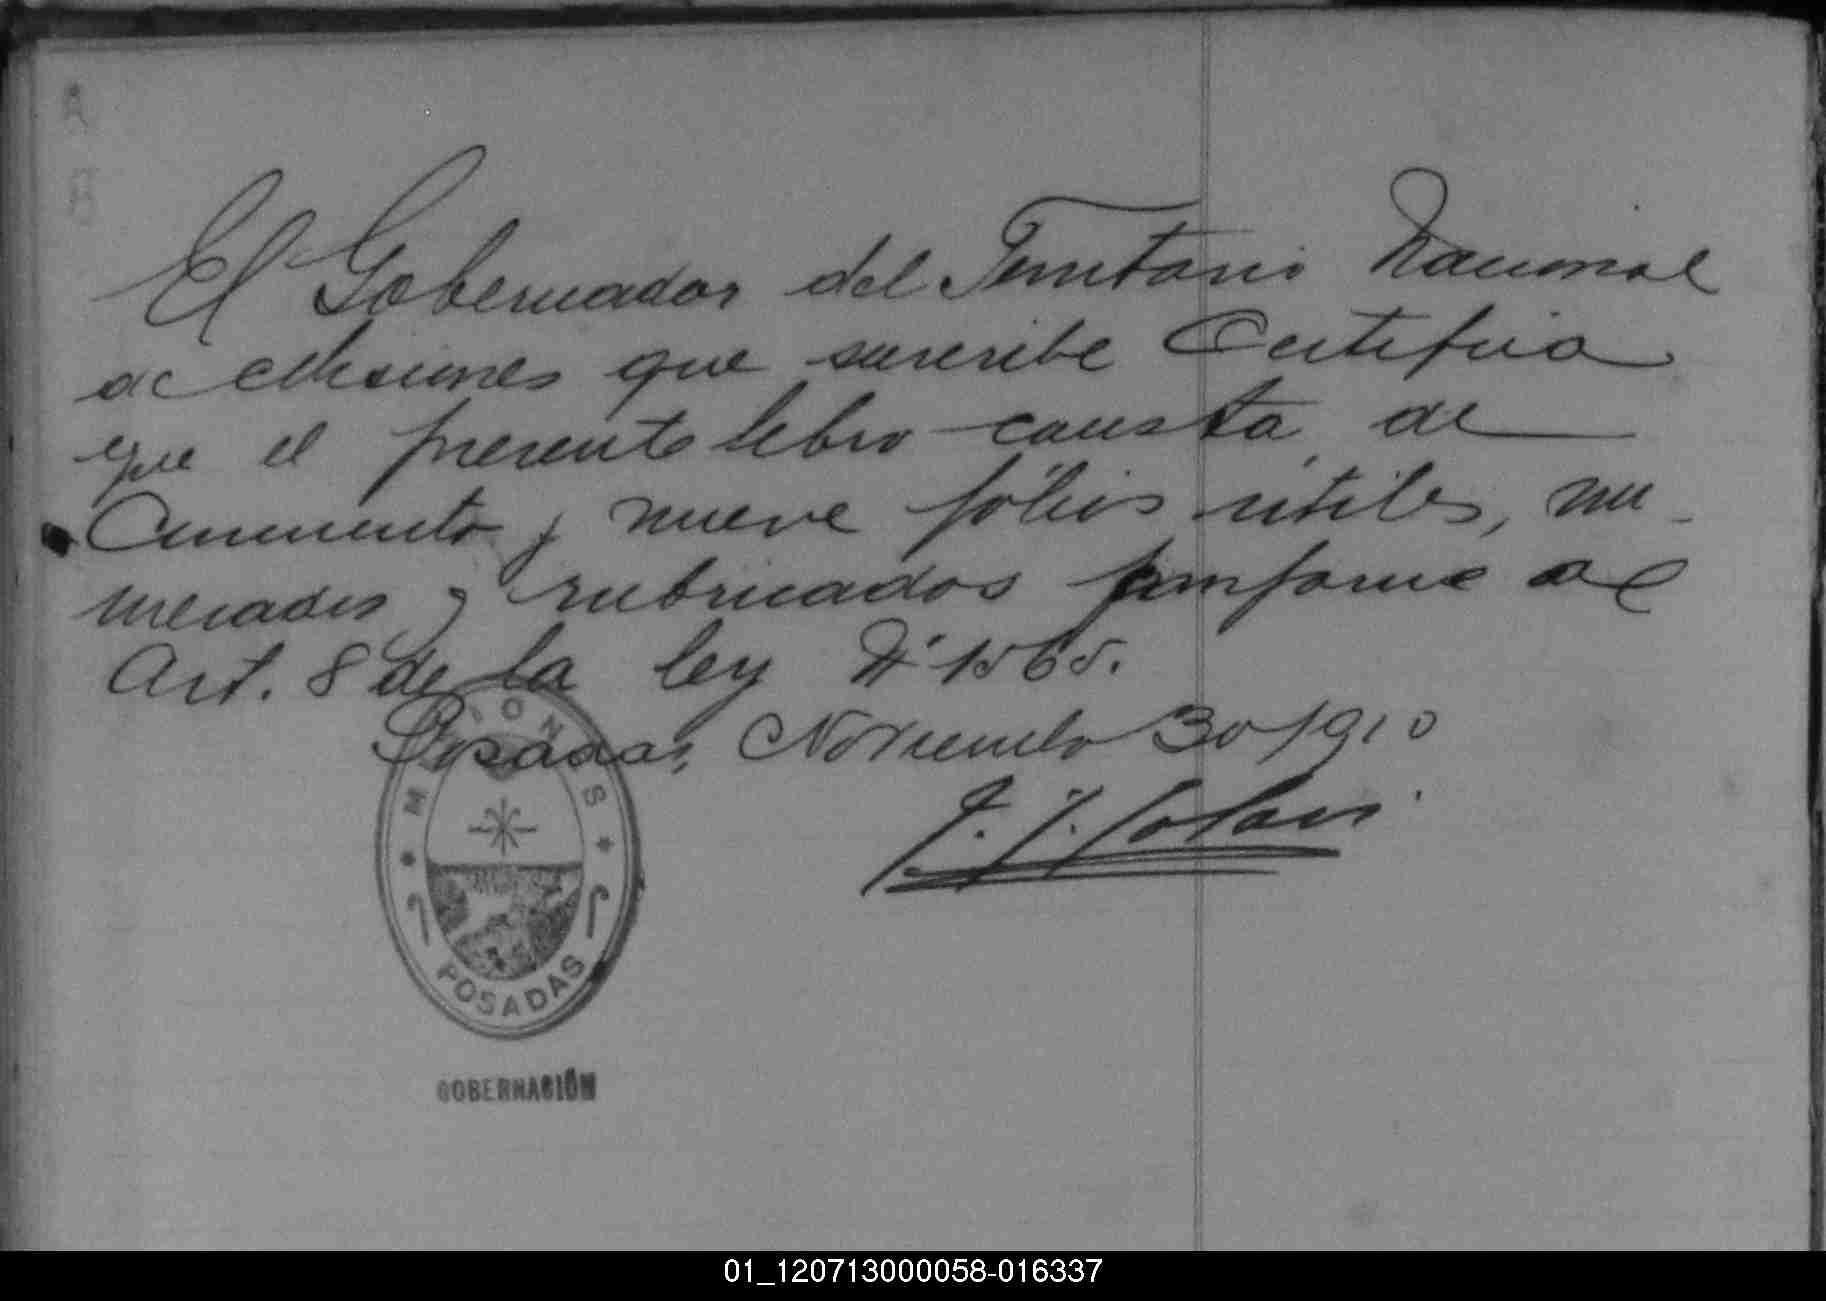 El Gobernador del Territorio Nacional
de Misiones que suscribe Certifica
que el presente libro consta de
Cincuenta y nueve fólios útiles, nu-
merados y rubricados conforme al
Art. 8 de la ley Nº 1565.
Posadas, Noviembre 30/1910
J. J. Solari
MISIONES
POSADAS
GOBERNACIÓN
01_120713000058-016337